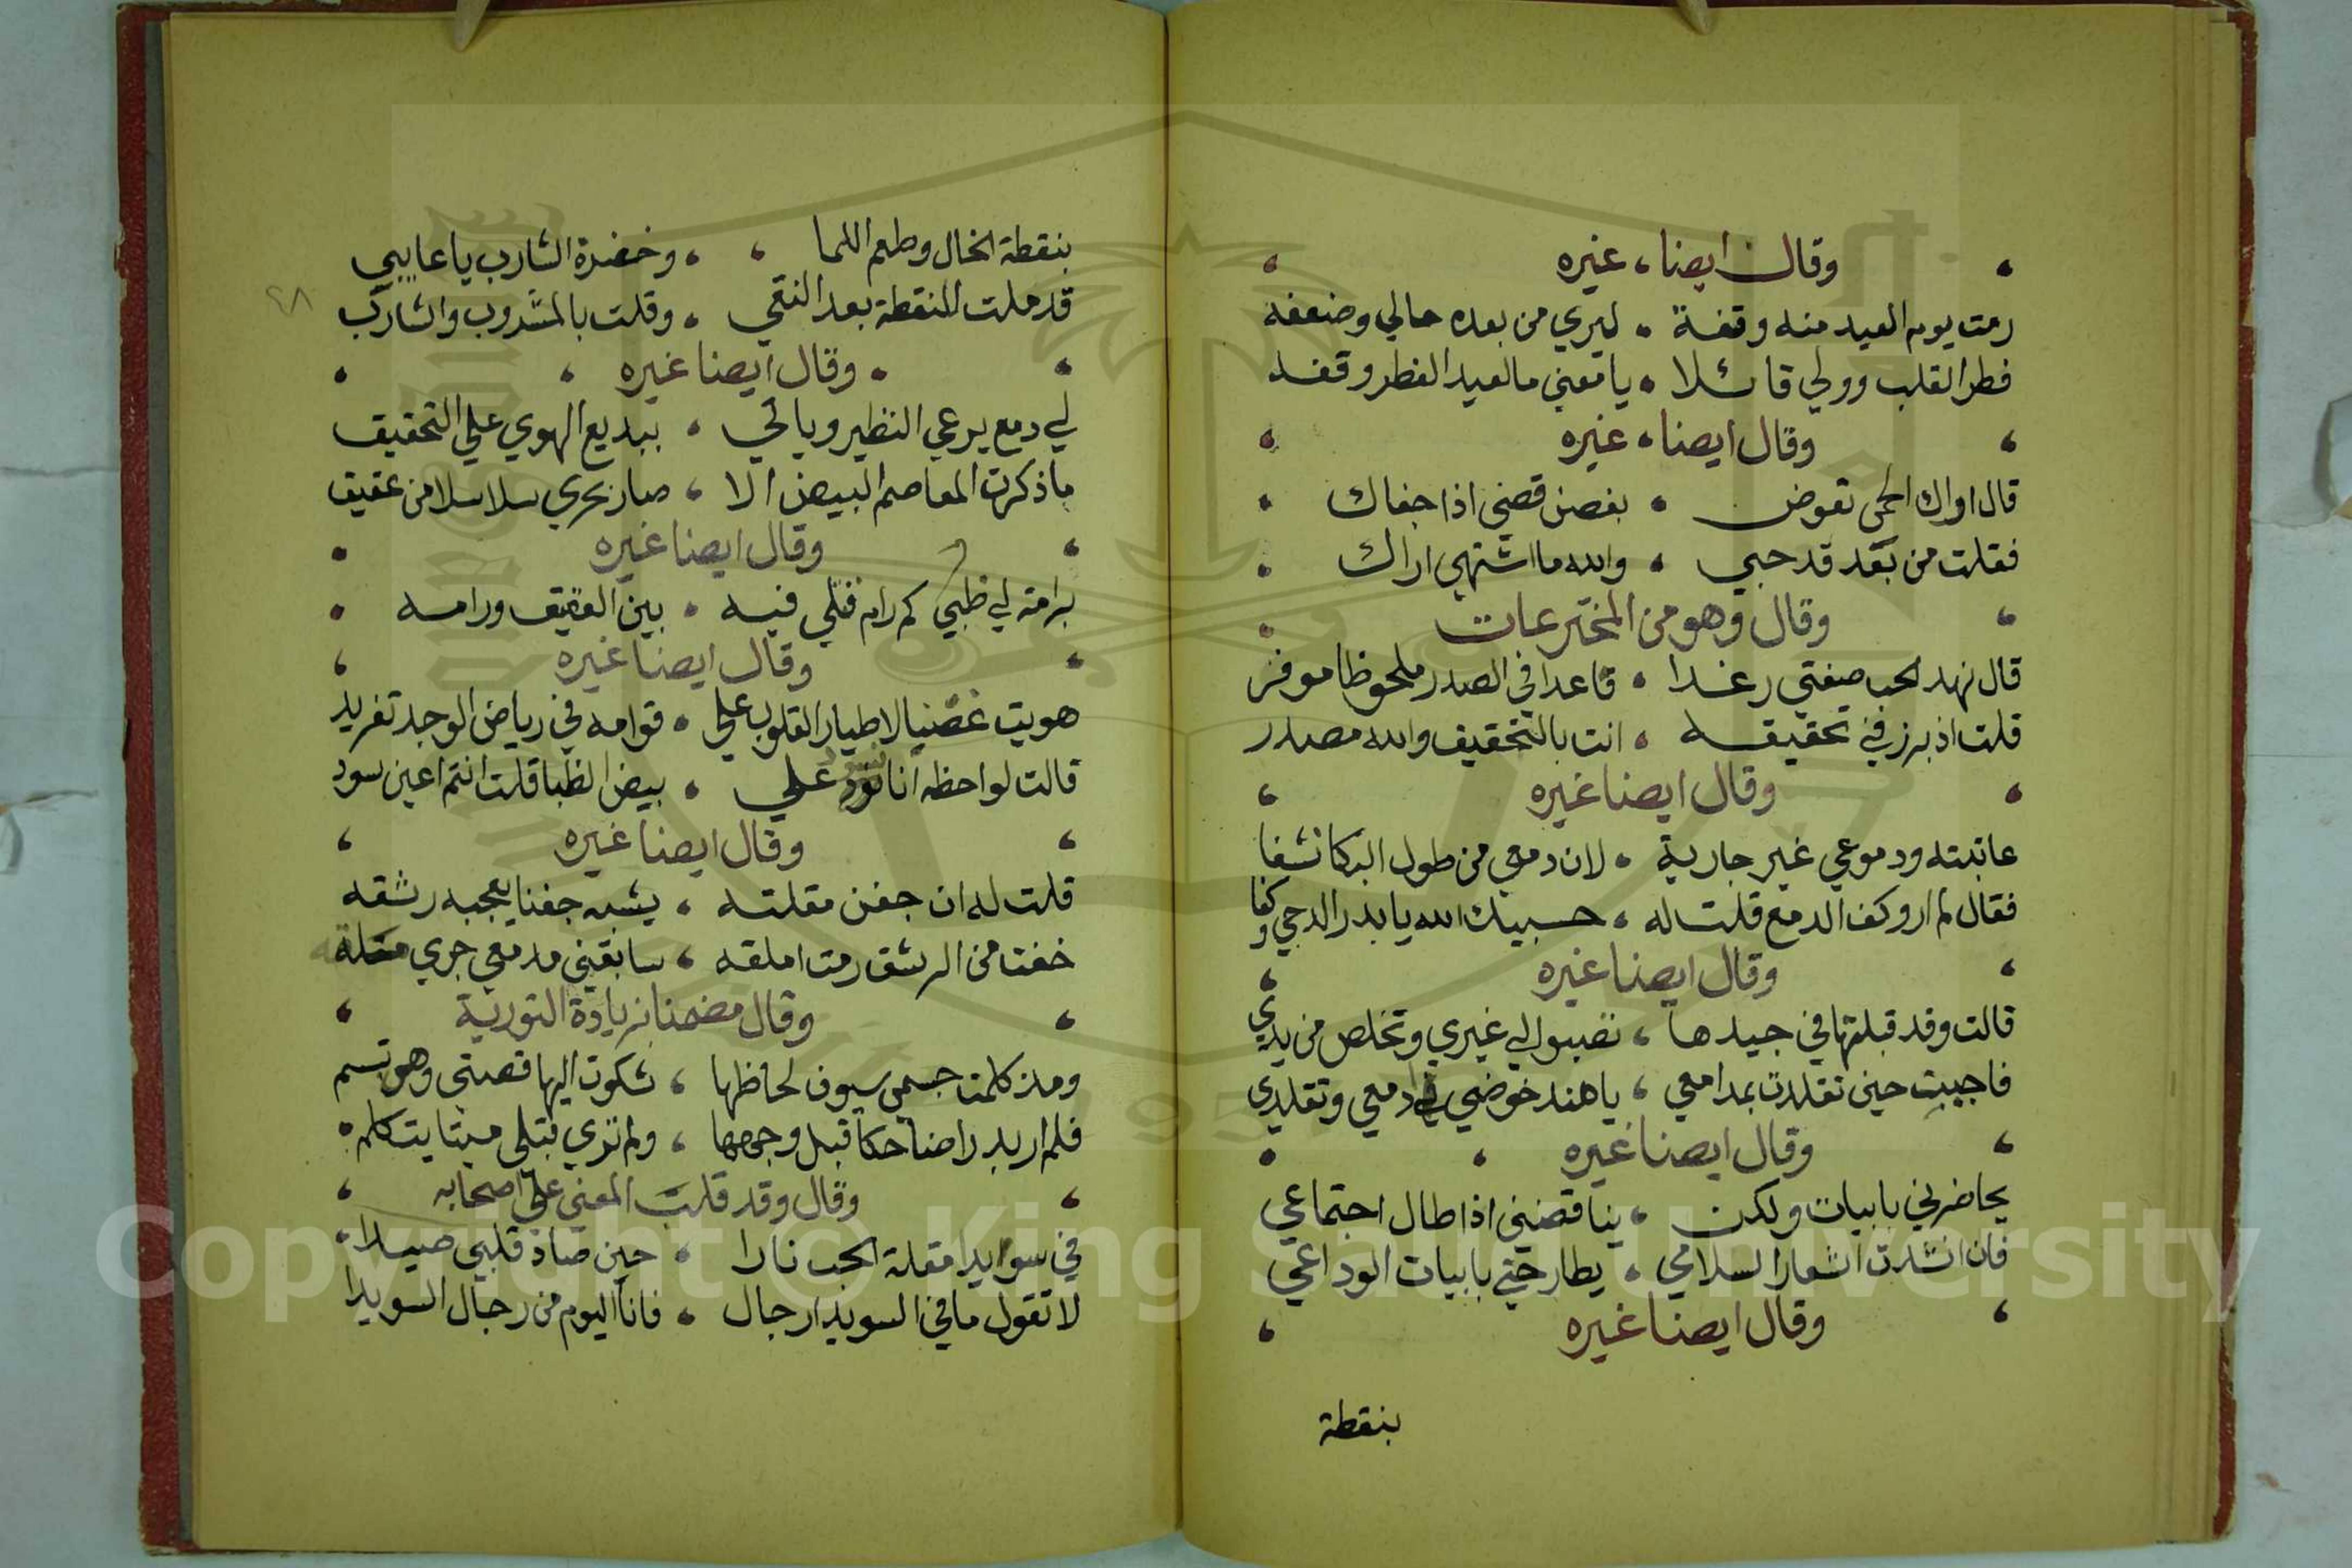 وقال ايضا، غيره
رمت يوم العيد منه وقفة ، ليري من بعده حالي وضعفه
فطر القلب وولي قائلا ، يا معني ما لعيد الفطر وقفه
وقال ايضا، غيره
قال اراك الحمى تعوض ، بغصن قضي اذا جفاك
فقلت من بعد قد حبي ، والله ما اشتهي اراك
وقال وهو من المخترعات
قال نهد الحب صيفتي رغدا ، قاعدا في الصدر ملحوظا موقر
قلت اذ برز في تحقيقه ، انت بالتحقيق والله مصدر
وقال ايضا غيره
عاتبته ودموعي غير جارية ، لان دمعي من طول البكا نشفا
فقال لم ار وكف الدمع قلت له ، حسبيك الله يا بدر الدجي وكفا
وقال ايضا غيره
قالت وقد قبلتها في جيدها ، تصبوا لي غيري وتخلص من يدي
فاجيبت حين تقلدت بمدامعي ، يا هند خوضي في دمعي وتقلدي
وقال ايضا غيره
يحاضرني بابيات ولكن ، يناقضني اذا طال اجتماعي
فان انشدت اشعار السلامي ، يطارحني بابيات الوداعي
وقال ايضا غيره
بنقطة
بنقطة الخال وطعم اللما ، وخضرة الشارب يا عايبي
قد ملت للنقطة بعد النقي ، وقلت بالمشروب والشارب
٢٨
وقال ايضا غيره
لي دمع يرعي النظير وياتي ، ببديع الهوي علي التحقيق
ما ذكرت المعاصم البيض الا ، صار يجري سلاسلا من عقيق
وقال ايضا غيره
برامة لي ظبي كم رام قتلي فيه ، بين العقيق ورامه
وقال ايضا غيره
هويت غصنيا لاطيار القلوب علي ، قوامه في رياض الوجد تغريد
قالت لواحظه انا نسود علي ، بيض الظبا قلت انتم اعين سود
وقال ايضا غيره
قلت له ان جفن مقلته ، يشبه جفنا يعجبه رشقه
خفت من الرشق رمت املقه ، سابقني مدمعي جري مقلة
وقال مضمنا بزيادة التورية
ومذ كلمت جسمي سيوف لحاظها ، شكوت اليها قصتي وهو تبسم
فلم ار بدرا ضاحكا قبل وجهها ، ولم تري قبلي ميتا يتكلم
وقال وقد قلب المعني علي اصحابه
في سوايدا مقلة الحب نادا ، حين صاد قلبي صيدا
لا تقول ما في السويدا رجال ، فانا اليوم من رجال السويدا
Copyright © King Saud University